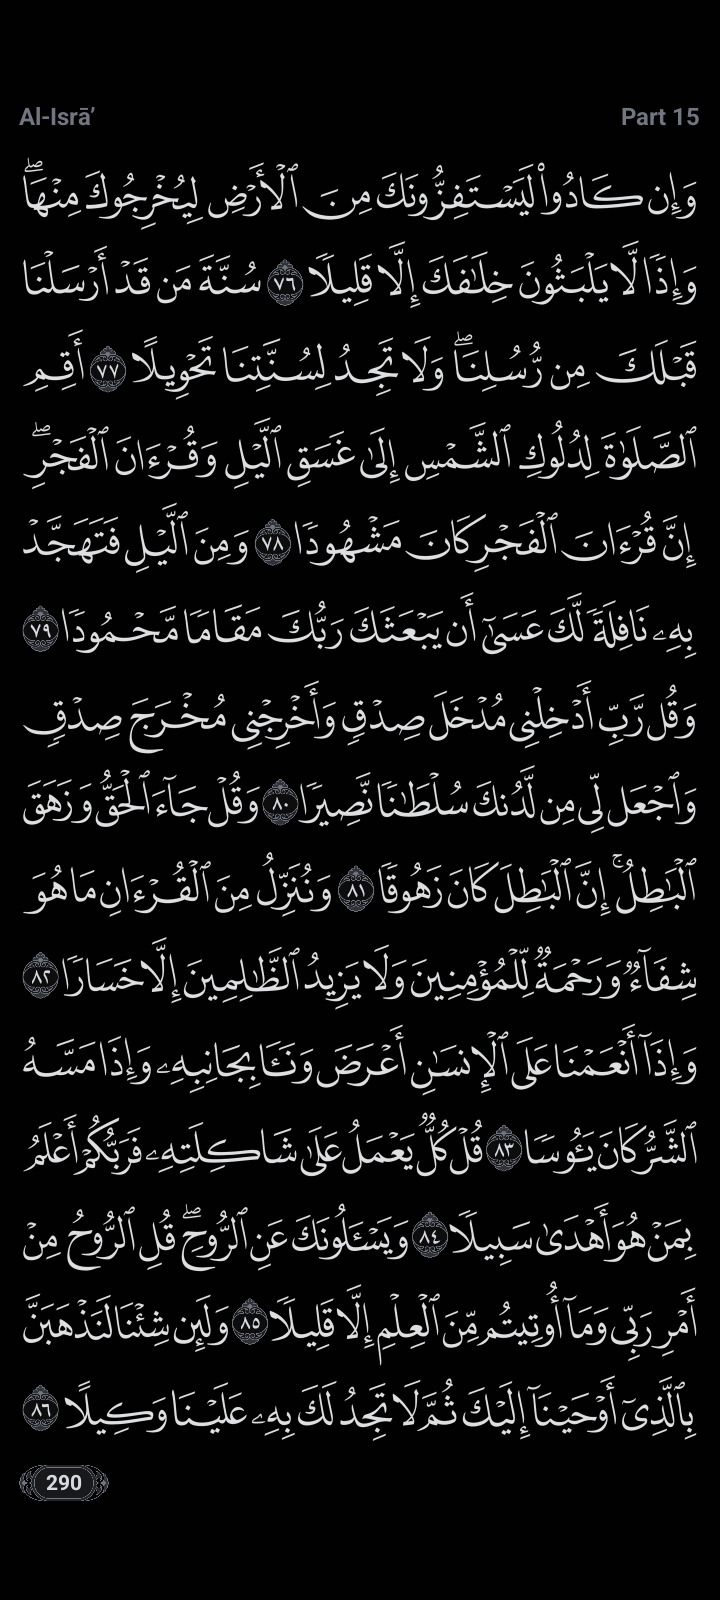 Al-Isrā’ Part 15
وَإِن كَادُوا۟ لَيَسْتَفِزُّونَكَ مِنَ ٱلْأَرْضِ لِيُخْرِجُوكَ مِنْهَا ۖ
وَإِذًا لَّا يَلْبَثُونَ خِلَٰفَكَ إِلَّا قَلِيلًا ٧٦ سُنَّةَ مَن قَدْ أَرْسَلْنَا
قَبْلَكَ مِن رُّسُلِنَا ۖ وَلَا تَجِدُ لِسُنَّتِنَا تَحْوِيلًا ٧٧ أَقِمِ
ٱلصَّلَوٰةَ لِدُلُوكِ ٱلشَّمْسِ إِلَىٰ غَسَقِ ٱلَّيْلِ وَقُرْءَانَ ٱلْفَجْرِ ۖ
إِنَّ قُرْءَانَ ٱلْفَجْرِ كَانَ مَشْهُودًا ٧٨ وَمِنَ ٱلَّيْلِ فَتَهَجَّدْ
بِهِۦ نَافِلَةً لَّكَ عَسَىٰٓ أَن يَبْعَثَكَ رَبُّكَ مَقَامًا مَّحْمُودًا ٧٩
وَقُل رَّبِّ أَدْخِلْنِى مُدْخَلَ صِدْقٍ وَأَخْرِجْنِى مُخْرَجَ صِدْقٍ
وَٱجْعَل لِّى مِن لَّدُنكَ سُلْطَٰنًا نَّصِيرًا ٨٠ وَقُلْ جَآءَ ٱلْحَقُّ وَزَهَقَ
ٱلْبَٰطِلُ ۚ إِنَّ ٱلْبَٰطِلَ كَانَ زَهُوقًا ٨١ وَنُنَزِّلُ مِنَ ٱلْقُرْءَانِ مَا هُوَ
شِفَآءٌ وَرَحْمَةٌ لِّلْمُؤْمِنِينَ وَلَا يَزِيدُ ٱلظَّٰلِمِينَ إِلَّا خَسَارًا ٨٢
وَإِذَآ أَنْعَمْنَا عَلَى ٱلْإِنسَٰنِ أَعْرَضَ وَنَـَٔا بِجَانِبِهِۦ وَإِذَا مَسَّهُ
ٱلشَّرُّ كَانَ يَـُٔوسًا ٨٣ قُلْ كُلٌّ يَعْمَلُ عَلَىٰ شَاكِلَتِهِۦ فَرَبُّكُمْ أَعْلَمُ
بِمَنْ هُوَ أَهْدَىٰ سَبِيلًا ٨٤ وَيَسْـَٔلُونَكَ عَنِ ٱلرُّوحِ ۖ قُلِ ٱلرُّوحُ مِنْ
أَمْرِ رَبِّى وَمَآ أُوتِيتُم مِّنَ ٱلْعِلْمِ إِلَّا قَلِيلًا ٨٥ وَلَئِن شِئْنَا لَنَذْهَبَنَّ
بِٱلَّذِىٓ أَوْحَيْنَآ إِلَيْكَ ثُمَّ لَا تَجِدُ لَكَ بِهِۦ عَلَيْنَا وَكِيلًا ٨٦
290